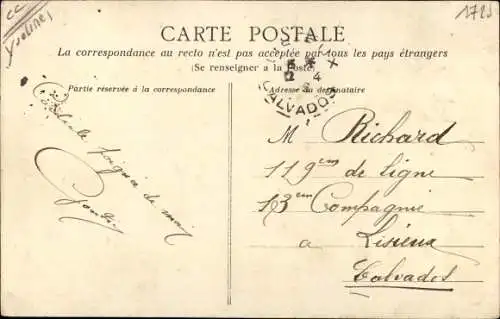 CC
Yvelines
1721
CARTE POSTALE
La correspondance au recto n'est pas acceptée par tous les pays étrangers
(Se renseigner a la Poste)
Partie réservée à la correspondance
Adresse du destinataire
CALVADOS
poignée de main
M Richard
119em de ligne
13em Compagnie
a Lisieux
Calvados